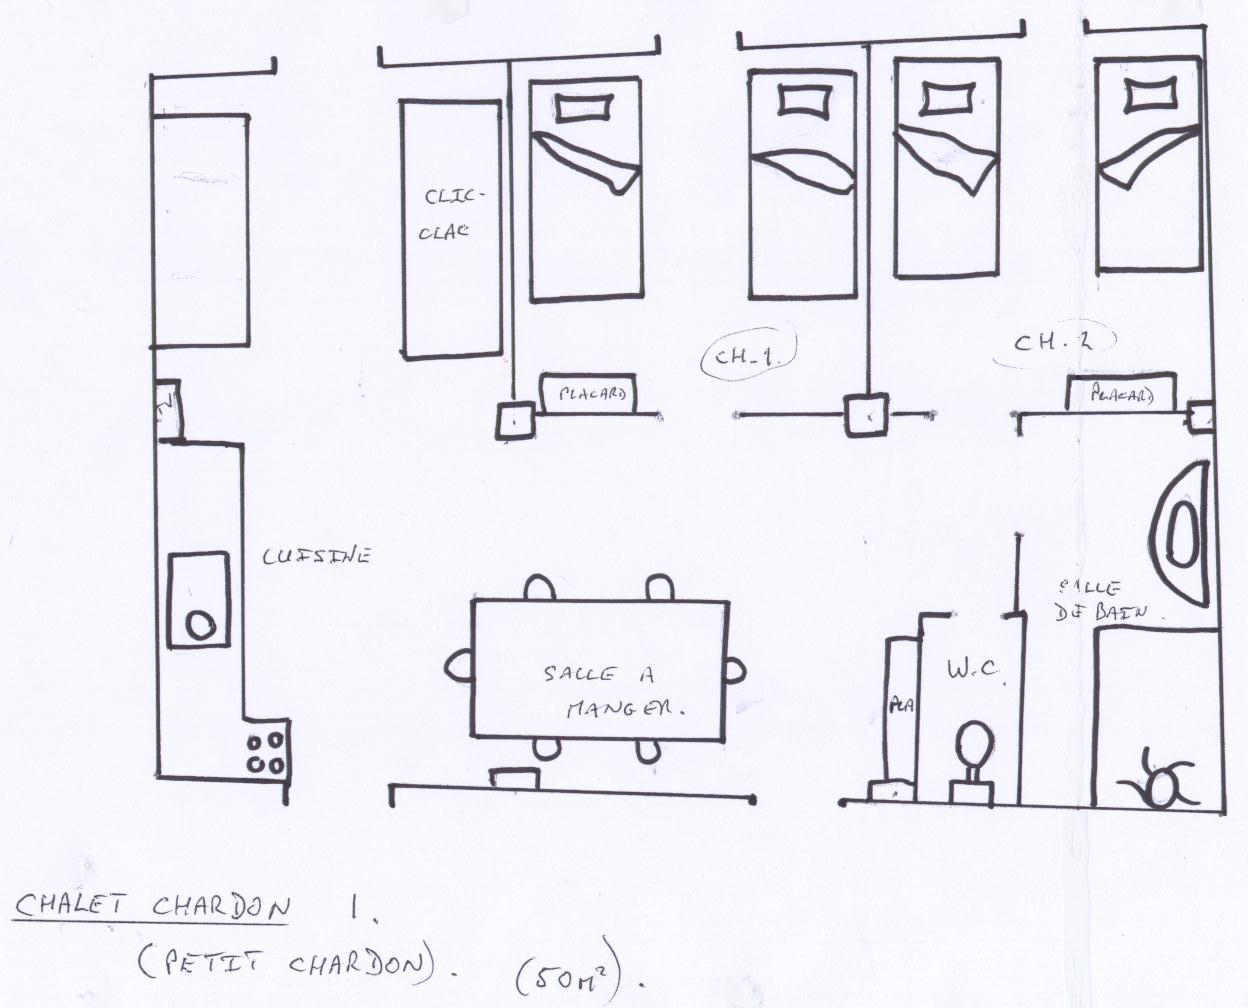 CLIC-
CLAC
CH-1.
CH.2
PLACARD
PLACARD
CUISINE
SALLE
DE BAIN.
SALLE A
MANGER.
W.C.
PLA
CHALET CHARDON 1.
(PETIT CHARDON). (50M²).